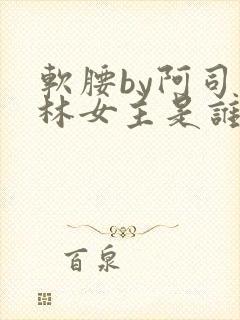 軟腰by阿司
林女主是誰
百泉